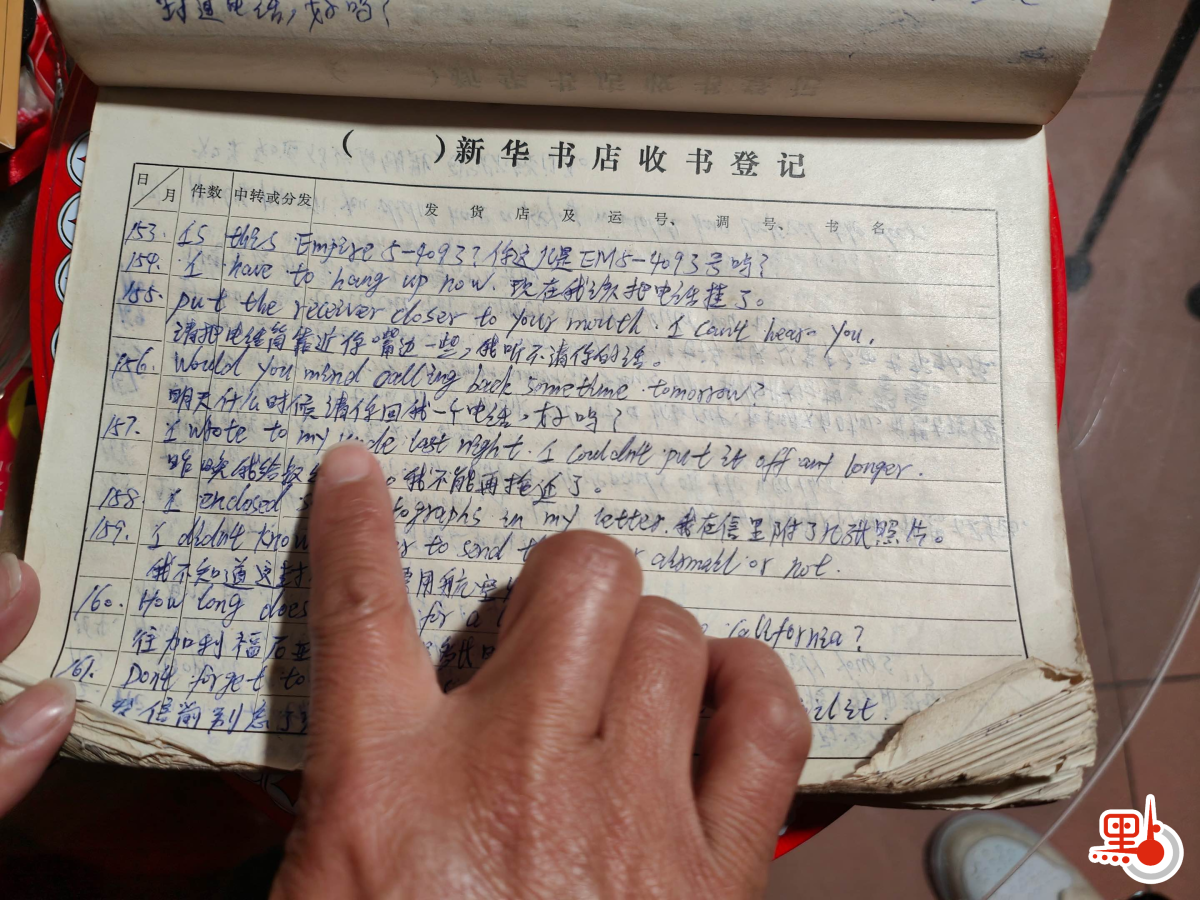 封通电话,好吗?
( )新华书店收书登记
日 月 件数 中转或分发 发货店及运号、调号、书名
153. Is this Empire 5-4093? 你这儿是EM5-4093号吗?
154. I have to hang up now. 现在我须把电话挂了。
155. put the receiver closer to your mouth. I can't hear you.
请把电话筒靠近你嘴边一些,我听不清你的话。
156. Would you mind calling back sometime tomorrow?
明天什么时候请你回我一个电话,好吗?
157. I wrote to my uncle last night. I couldn't put it off any longer.
昨晚我给叔 我不能再拖延了。
158. I enclosed tographs in my letter. 我在信里附了几张照片。
159. I didn't know to send airmail or not.
我不知道这封 用航空
160. How long does for a California?
往加利福尼亚
161. Don't forget to
发信前别忘了
點